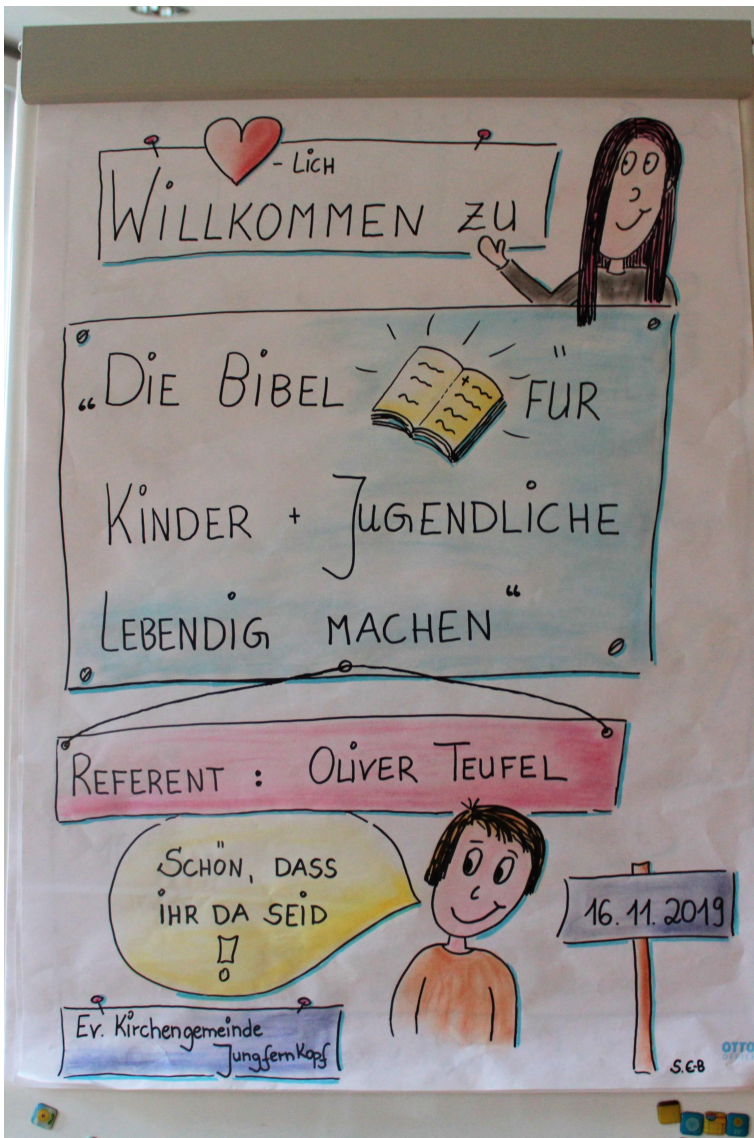 - LICH
WILLKOMMEN ZU
„DIE BIBEL FÜR
KINDER + JUGENDLICHE
LEBENDIG MACHEN“
REFERENT : OLIVER TEUFEL
SCHÖN, DASS
IHR DA SEID
!
16.11.2019
Ev. Kirchengemeinde
Jungfernkopf
S.E-B
OTTO